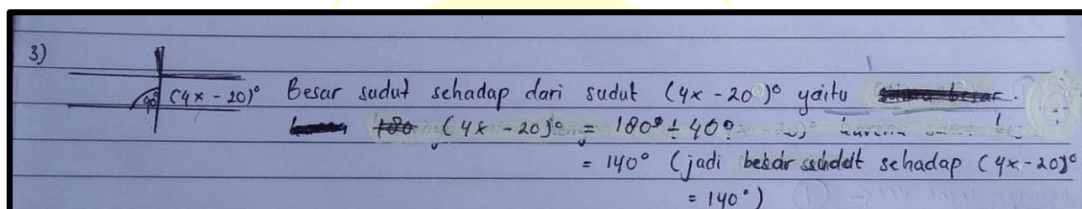 3)
40° (4x - 20)° Besar sudut sehadap dari sudut (4x - 20°)° yaitu
(4x - 20)° = 180° - 40°
= 140° (jadi besar sudut sehadap (4x - 20)°
= 140°)